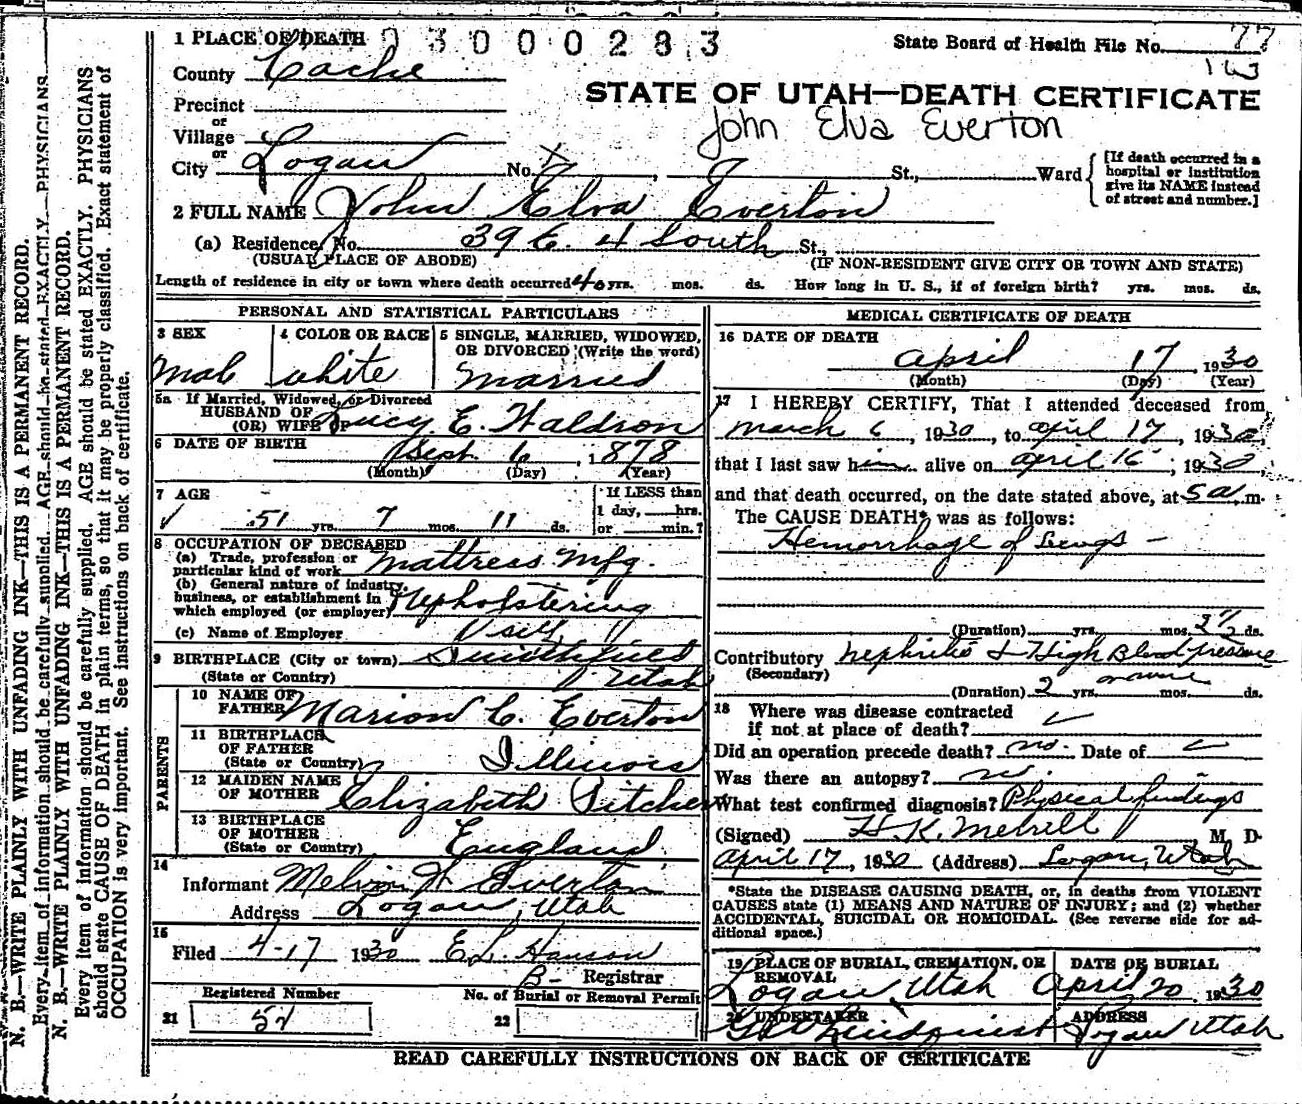 N. B.—WRITE PLAINLY WITH UNFADING INK—THIS IS A PERMANENT RECORD.
Every item of information should be carefully supplied. AGE should be stated EXACTLY. PHYSICIANS
N. B.—WRITE PLAINLY WITH UNFADING INK—THIS IS A PERMANENT RECORD.
Every item of information should be carefully supplied. AGE should be stated EXACTLY. PHYSICIANS
should state CAUSE OF DEATH in plain terms, so that it may be properly classified. Exact statement of
OCCUPATION is very important. See instructions on back of certificate.
1 PLACE OF DEATH 3000283 State Board of Health File No. 77
163
County Cache
STATE OF UTAH—DEATH CERTIFICATE
John Elva Everton
Precinct
or
Village
or
City Logan No. St., Ward [If death occurred in a
hospital or institution
give its NAME instead
of street and number.]
2 FULL NAME John Elva Everton
(a) Residence, No. 39 E. 4 South St.,
(USUAL PLACE OF ABODE) (IF NON-RESIDENT GIVE CITY OR TOWN AND STATE)
Length of residence in city or town where death occurred 40 yrs. mos. ds. How long in U. S., if of foreign birth? yrs. mos. ds.
PERSONAL AND STATISTICAL PARTICULARS
3 SEX 4 COLOR OR RACE 5 SINGLE, MARRIED, WIDOWED,
OR DIVORCED (Write the word)
Male white Married
5a If Married, Widowed, or Divorced
HUSBAND OF
(OR) WIFE OF Lucy E. Waldron
6 DATE OF BIRTH Sept. 6, 1878
(Month) (Day) (Year)
7 AGE If LESS than
1 day, hrs.
51 yrs. 7 mos. 11 ds. or min.?
8 OCCUPATION OF DECEASED
(a) Trade, profession or
particular kind of work Mattress Mfg.
(b) General nature of industry,
business, or establishment in
which employed (or employer) Upholstering
(c) Name of Employer self
9 BIRTHPLACE (City or town) Smithfield
(State or Country) Utah
PARENTS
10 NAME OF
FATHER Marion C. Everton
11 BIRTHPLACE
OF FATHER
(State or Country) Illinois
12 MAIDEN NAME
OF MOTHER Elizabeth Pitcher
13 BIRTHPLACE
OF MOTHER
(State or Country) England
14
Informant Melvin W. Everton
Address Logan, Utah
15
Filed 4-17 1930 E L. Hanson
B- Registrar
Registered Number No. of Burial or Removal Permit
21 52 22
MEDICAL CERTIFICATE OF DEATH
16 DATE OF DEATH
April 17, 1930
(Month) (Day) (Year)
17 I HEREBY CERTIFY, That I attended deceased from
March 6, 1930, to April 17, 1930,
that I last saw him alive on April 16, 1930,
and that death occurred, on the date stated above, at 5 a m.
The CAUSE DEATH* was as follows:
Hemorrhage of Lungs —
(Duration) yrs. mos. 2 1/2 ds.
Contributory Nephritis & High Blood pressure
(Secondary) or more
(Duration) 2 yrs. mos. ds.
18 Where was disease contracted
if not at place of death?
Did an operation precede death? no. Date of
Was there an autopsy? no.
What test confirmed diagnosis? Physical findings
(Signed) H K. Merrill M. D.
April 17, 1930 (Address) Logan, Utah
*State the DISEASE CAUSING DEATH, or, in deaths from VIOLENT
CAUSES state (1) MEANS AND NATURE OF INJURY; and (2) whether
ACCIDENTAL, SUICIDAL OR HOMICIDAL. (See reverse side for ad-
ditional space.)
19 PLACE OF BURIAL, CREMATION, OR DATE OF BURIAL
REMOVAL
Logan Utah April 20, 1930
20 UNDERTAKER ADDRESS
Lindquist Logan Utah
READ CAREFULLY INSTRUCTIONS ON BACK OF CERTIFICATE